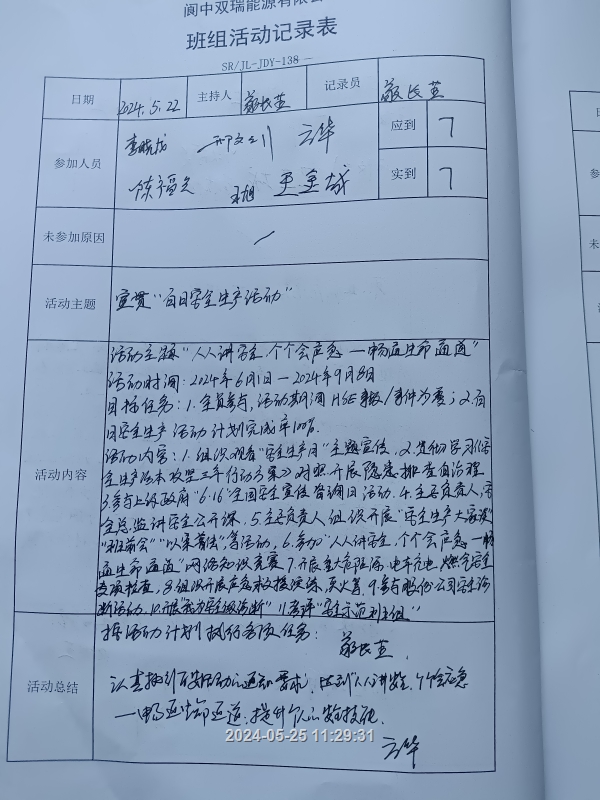 阆中双瑞能源有限公
班组活动记录表
SR/JL-JDY-138
日期 2024.5.22 主持人 记录员
参加人员 应到 7
陈福久 王旭 实到 7
未参加原因 /
活动主题 宣贯“百日安全生产活动”
活动主题“人人讲安全、个个会应急—畅通生命通道”
活动时间:2024年6月1日—2024年9月8日
目标任务:1.全员参与,活动期间HSE事故/事件为零;2.百
日安全生产活动计划完成率100%.
活动内容 活动内容:1.组织观看“安全生产月”主题宣传,2.贯彻学习《安
全生产治本攻坚三年行动方案》对照开展隐患排查自治理
3.参与上级政府“6·16”全国安全宣传咨询日活动.4.主要负责人,安
全总监讲安全公开课.5.主要负责人组织开展“安全生产大家谈”
“班前会”“以案普法”等活动,6.参加“人人讲安全,个个会应急—畅
通生命通道”网络知识竞赛 7.开展重大危险源,电车充电,燃气安全
专项检查,8.组织开展应急救援演练,灭火等,9.参与股份公司安全诊
断活动.10.开展“我为安全做诊断”11.查评“安全示范班组”
按活动计划执行各项任务:
活动总结 要求,达到人人讲安全,个个会应急
一畅通生命通道.提升个人的安全技能.
2024-05-25 11:29:31